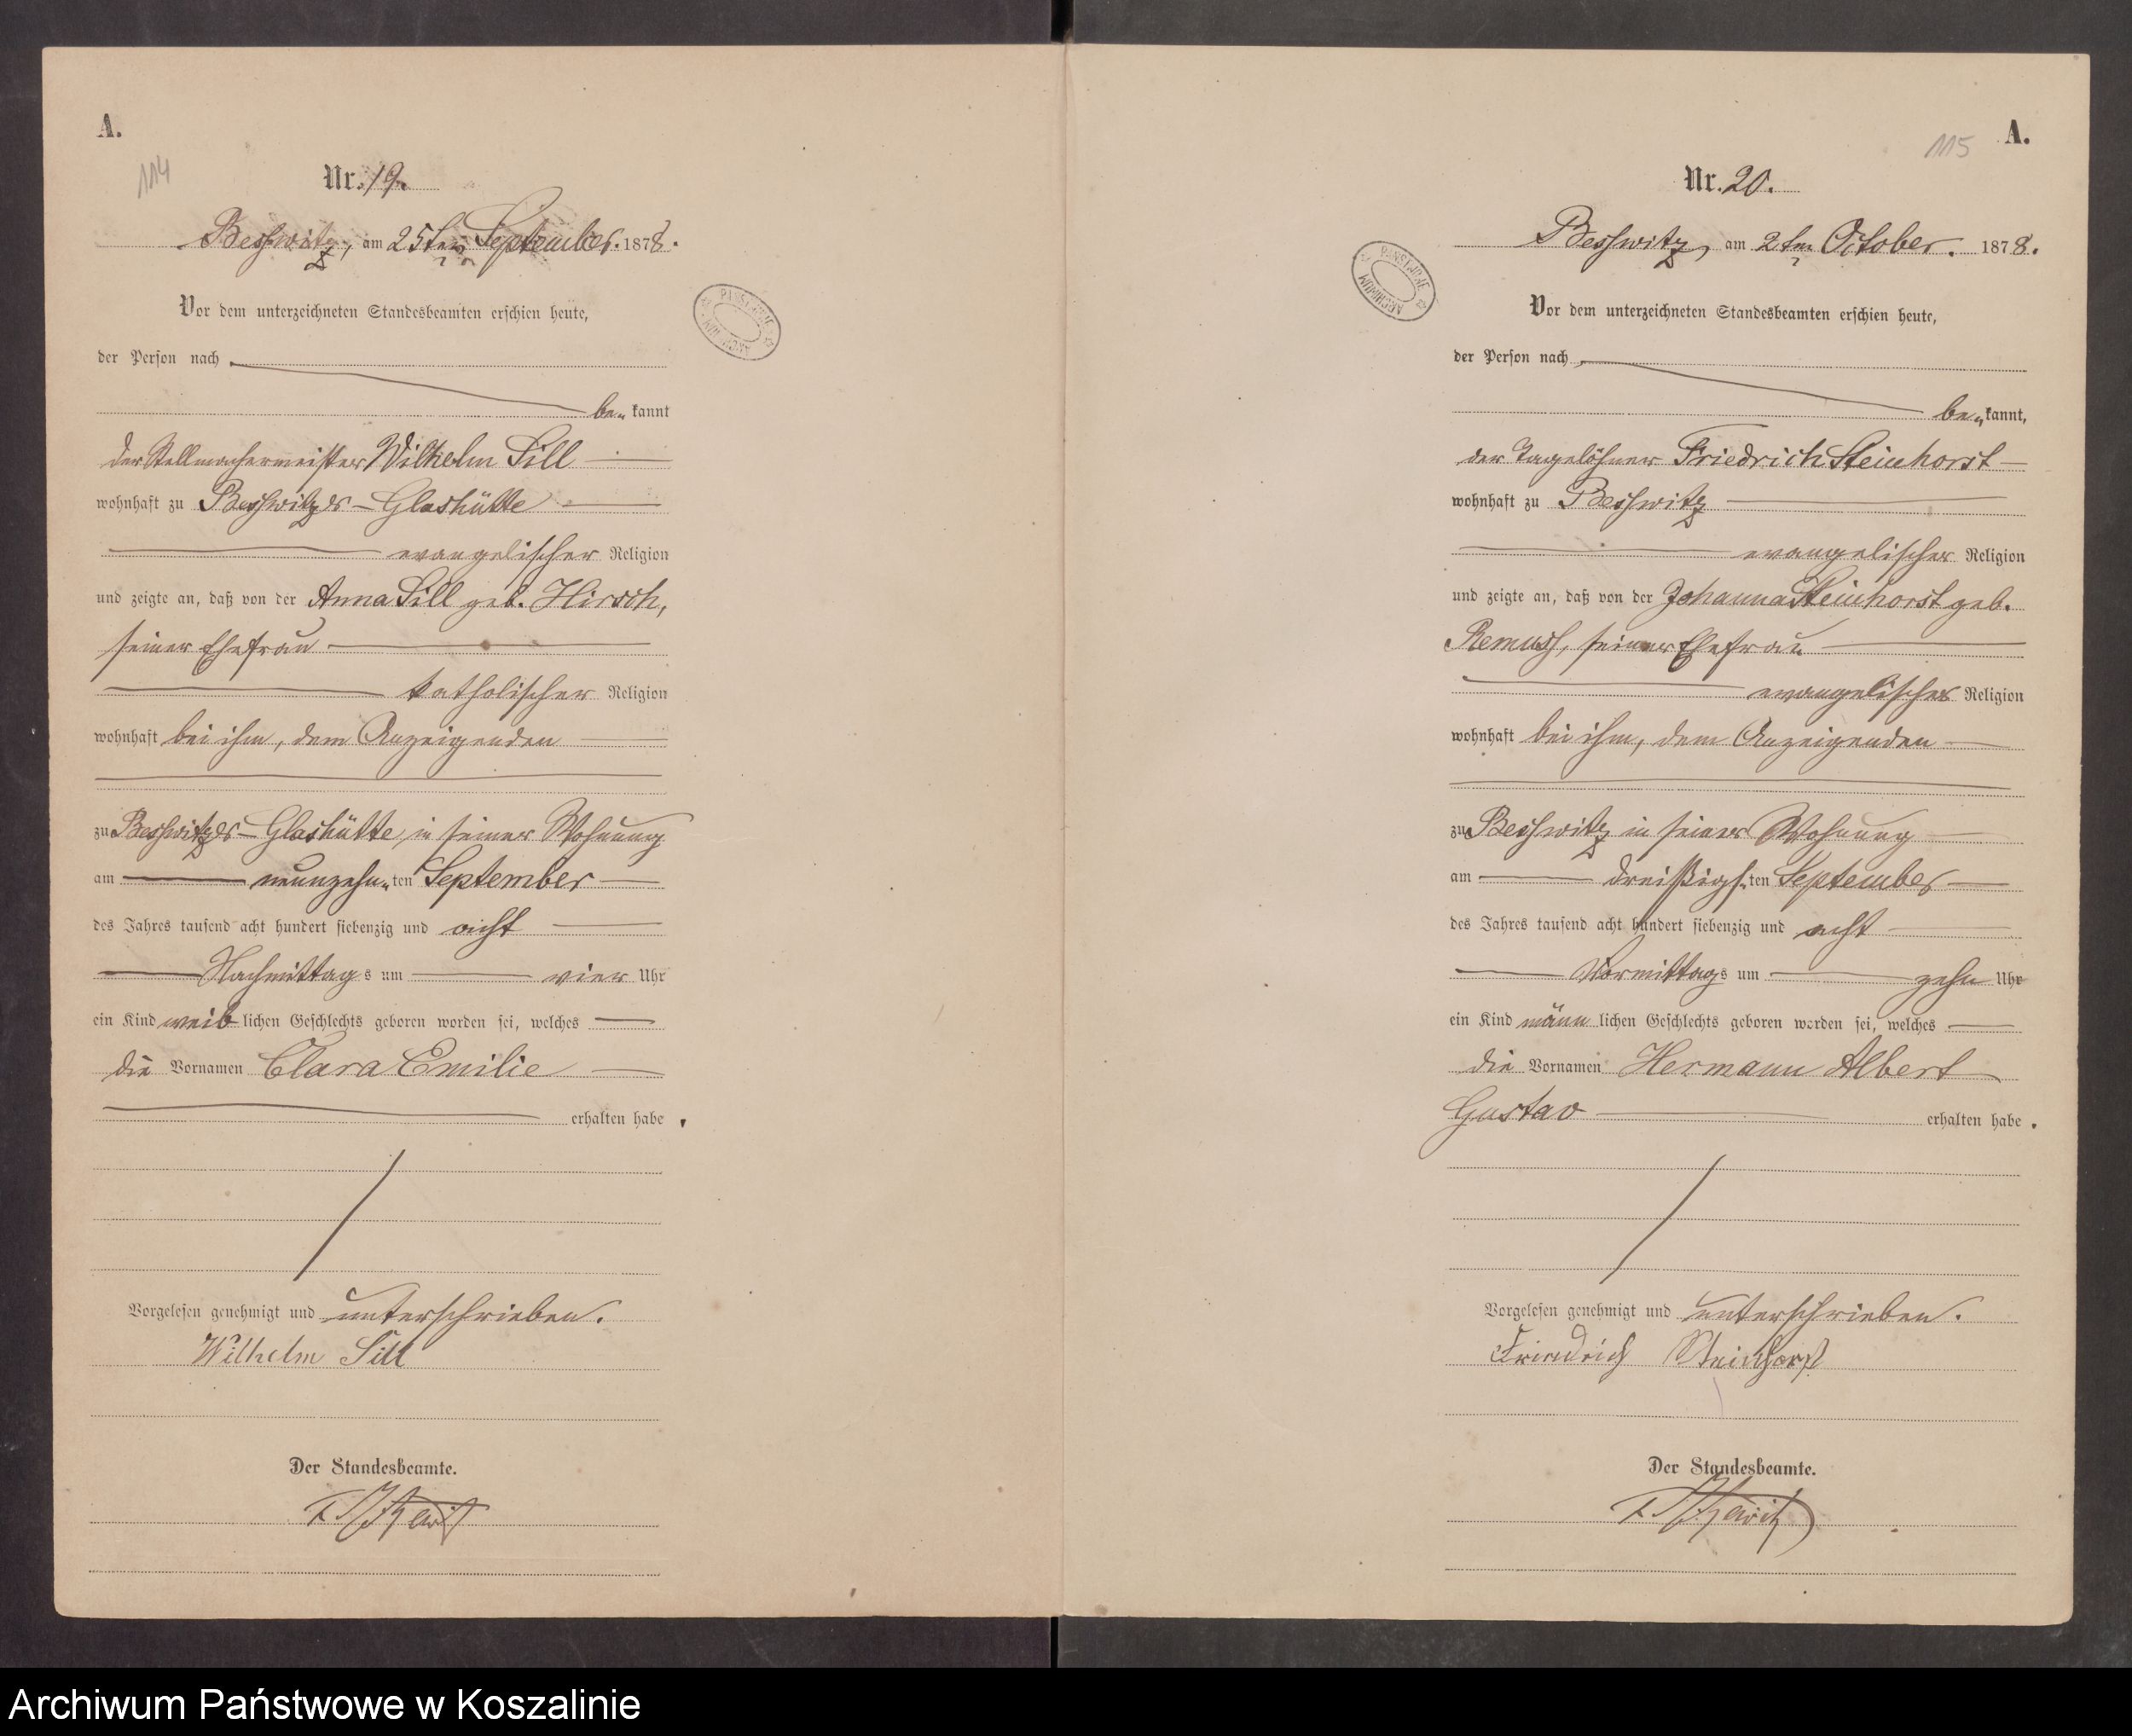 A.
114
Nr. 19.
Besswitz, am 25ten September 1878.
Vor dem unterzeichneten Standesbeamten erschien heute,
der Person nach
be„ kannt
der Stellmachermeister Wilhelm Sill
wohnhaft zu Besswitzer-Glashütte
evangelischer Religion
und zeigte an, daß von der Anna Sill geb. Hirsch,
seiner Ehefrau
katholischer Religion
wohnhaft bei ihm, dem Anzeigenden
zu Besswitzer-Glashütte, in seiner Wohnung
am neunzehn„ten September
des Jahres tausend acht hundert siebenzig und acht
Nachmittags um vier Uhr
ein Kind weiblichen Geschlechts geboren worden sei, welches
die Vornamen Clara Emilie
erhalten habe.
Vorgelesen genehmigt und unterschrieben.
Wilhelm Sill
Der Standesbeamte.
PAŃSTWOWE ARCHIWUM
115
A.
Nr. 20.
Besswitz, am 2ten October. 1878.
Vor dem unterzeichneten Standesbeamten erschien heute,
der Person nach
be„kannt,
der Tagelöhner Friedrich Steinhorst
wohnhaft zu Besswitz
evangelischer Religion
und zeigte an, daß von der Johanna Steinhorst geb.
Remuss, seiner Ehefrau
evangelischer Religion
wohnhaft bei ihm, dem Anzeigenden
zu Besswitz in seiner Wohnung
am dreißigsten September
des Jahres tausend acht hundert siebenzig und acht
Vormittags um zehn Uhr
ein Kind männlichen Geschlechts geboren worden sei, welches
die Vornamen Hermann Albert
Gustav erhalten habe.
Vorgelesen genehmigt und unterschrieben.
Friedrich Steinhorst
Der Standesbeamte.
PAŃSTWOWE ARCHIWUM
Archiwum Państwowe w Koszalinie